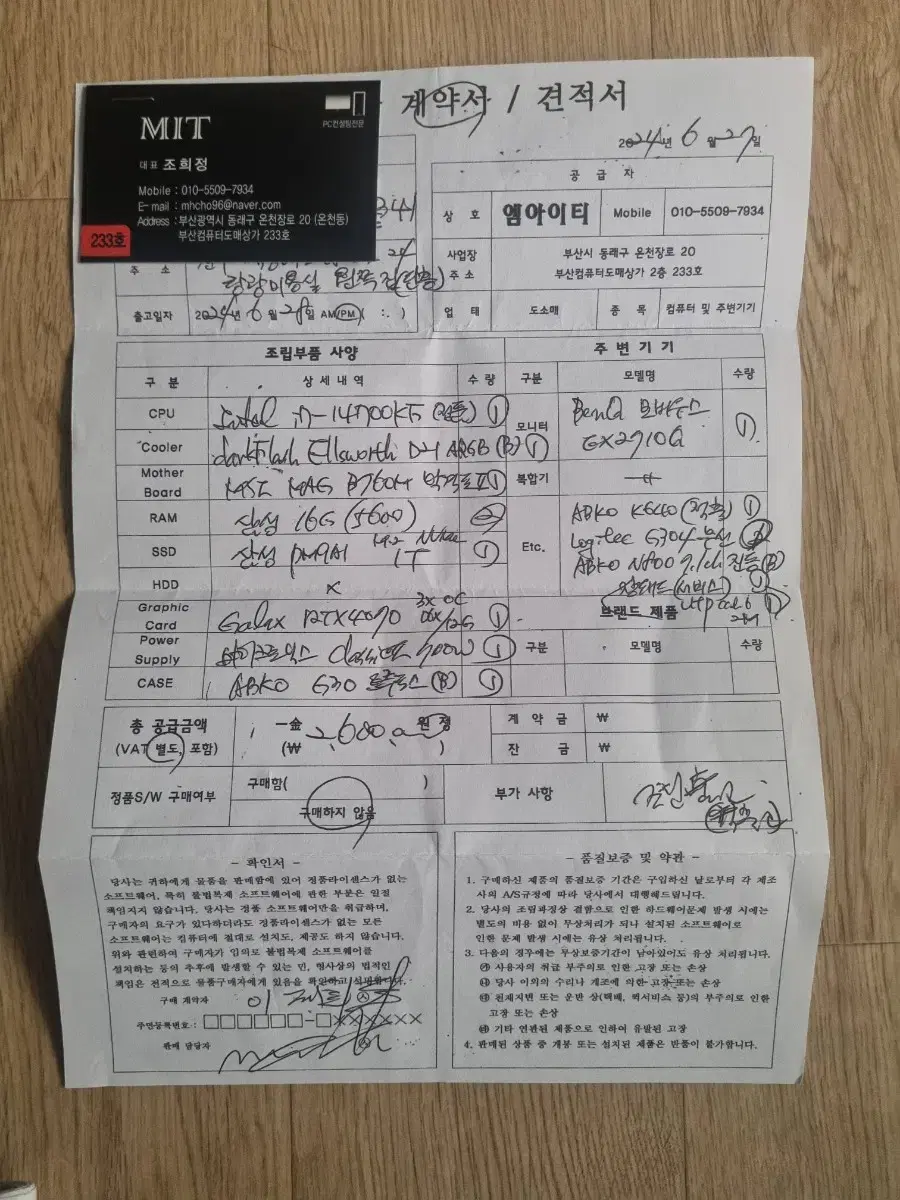 계약서 / 견적서
MIT
PC컨설팅전문
대표 조희정
Mobile : 010-5509-7934
E-mail : mhcho96@naver.com
Address : 부산광역시 동래구 온천장로 20 (온천동)
부산컴퓨터도매상가 233호
233호
2024년 6월 27일
공급자
상호 엠아이티 Mobile 010-5509-7934
사업장 주소 부산시 동래구 온천장로 20
부산컴퓨터도매상가 2층 233호
업태 도소매 종목 컴퓨터 및 주변기기
주소
출고일자 2024년 6월 28일 AM PM ( : . )
조립부품 사양 주변기기
구분 상세내역 수량 구분 모델명 수량
CPU Intel i7-14700KF (정품) 1
모니터 BenQ
EX2710Q 1
Cooler darkflash Ellsworth D4 ARGB (B) 1
Mother Board MSI MAG B760M 박격포 II 1
복합기
RAM 삼성 16G (5600) 2
SSD 삼성 PM9A1 M.2 NVMe 1T 1
Etc. ABKO K640 (축) 1
G304 무선
ABKO N700 7.1ch (B)
장패드 (서비스) 1
UTP cat.6 1
HDD X
브랜드 제품
Graphic Card Galax RTX4070 3X OC D6X/12G 1
구분 모델명 수량
Power Supply 마이크로닉스 700W 1
CASE ABKO G30 (B) 1
총 공급금액 (VAT 별도, 포함)
一金 원정
(₩ 2,680,0 )
계약금 ₩
잔금 ₩
정품S/W 구매여부
구매함( )
구매하지 않음
부가 사항
- 확인서 -
당사는 귀하에게 물품을 판매함에 있어 정품라이센스가 없는
소프트웨어, 특히 불법복제 소프트웨어에 관한 부분은 일절
책임지지 않습니다. 당사는 정품 소프트웨어만을 취급하며,
구매자의 요구가 있다하더라도 정품라이센스가 없는 모든
소프트웨어는 컴퓨터에 절대로 설치도, 제공도 하지 않습니다.
위와 관련하여 구매자가 임의로 불법복제 소프트웨어를
설치하는 등의 추후에 발생할 수 있는 민, 형사상의 법적인
책임은 전적으로 물품구매자에게 있음을 확인하고
구매 계약자
주민등록번호 : □□□□□□-□XXXXXX
판매 담당자
- 품질보증 및 약관 -
1. 구매하신 제품의 품질보증 기간은 구입하신 날로부터 각 제조
사의 A/S규정에 따라 당사에서 대행해드립니다.
2. 당사의 조립과정상 결함으로 인한 하드웨어문제 발생 시에는
별도의 비용 없이 무상처리가 되나 설치된 소프트웨어로
인한 문제 발생 시에는 유상 처리됩니다.
3. 다음의 경우에는 무상보증기간이 남아있어도 유상 처리됩니다.
㉮ 사용자의 취급 부주의로 인한 고장 또는 손상
㉯ 당사 이외의 수리나 개조에 의한 고장 또는 손상
㉰ 천재지변 또는 운반 상(택배, 퀵서비스 등)의 부주의로 인한
고장 또는 손상
㉱ 기타 연관된 제품으로 인하여 유발된 고장
4. 판매된 상품 중 개봉 또는 설치된 제품은 반품이 불가합니다.